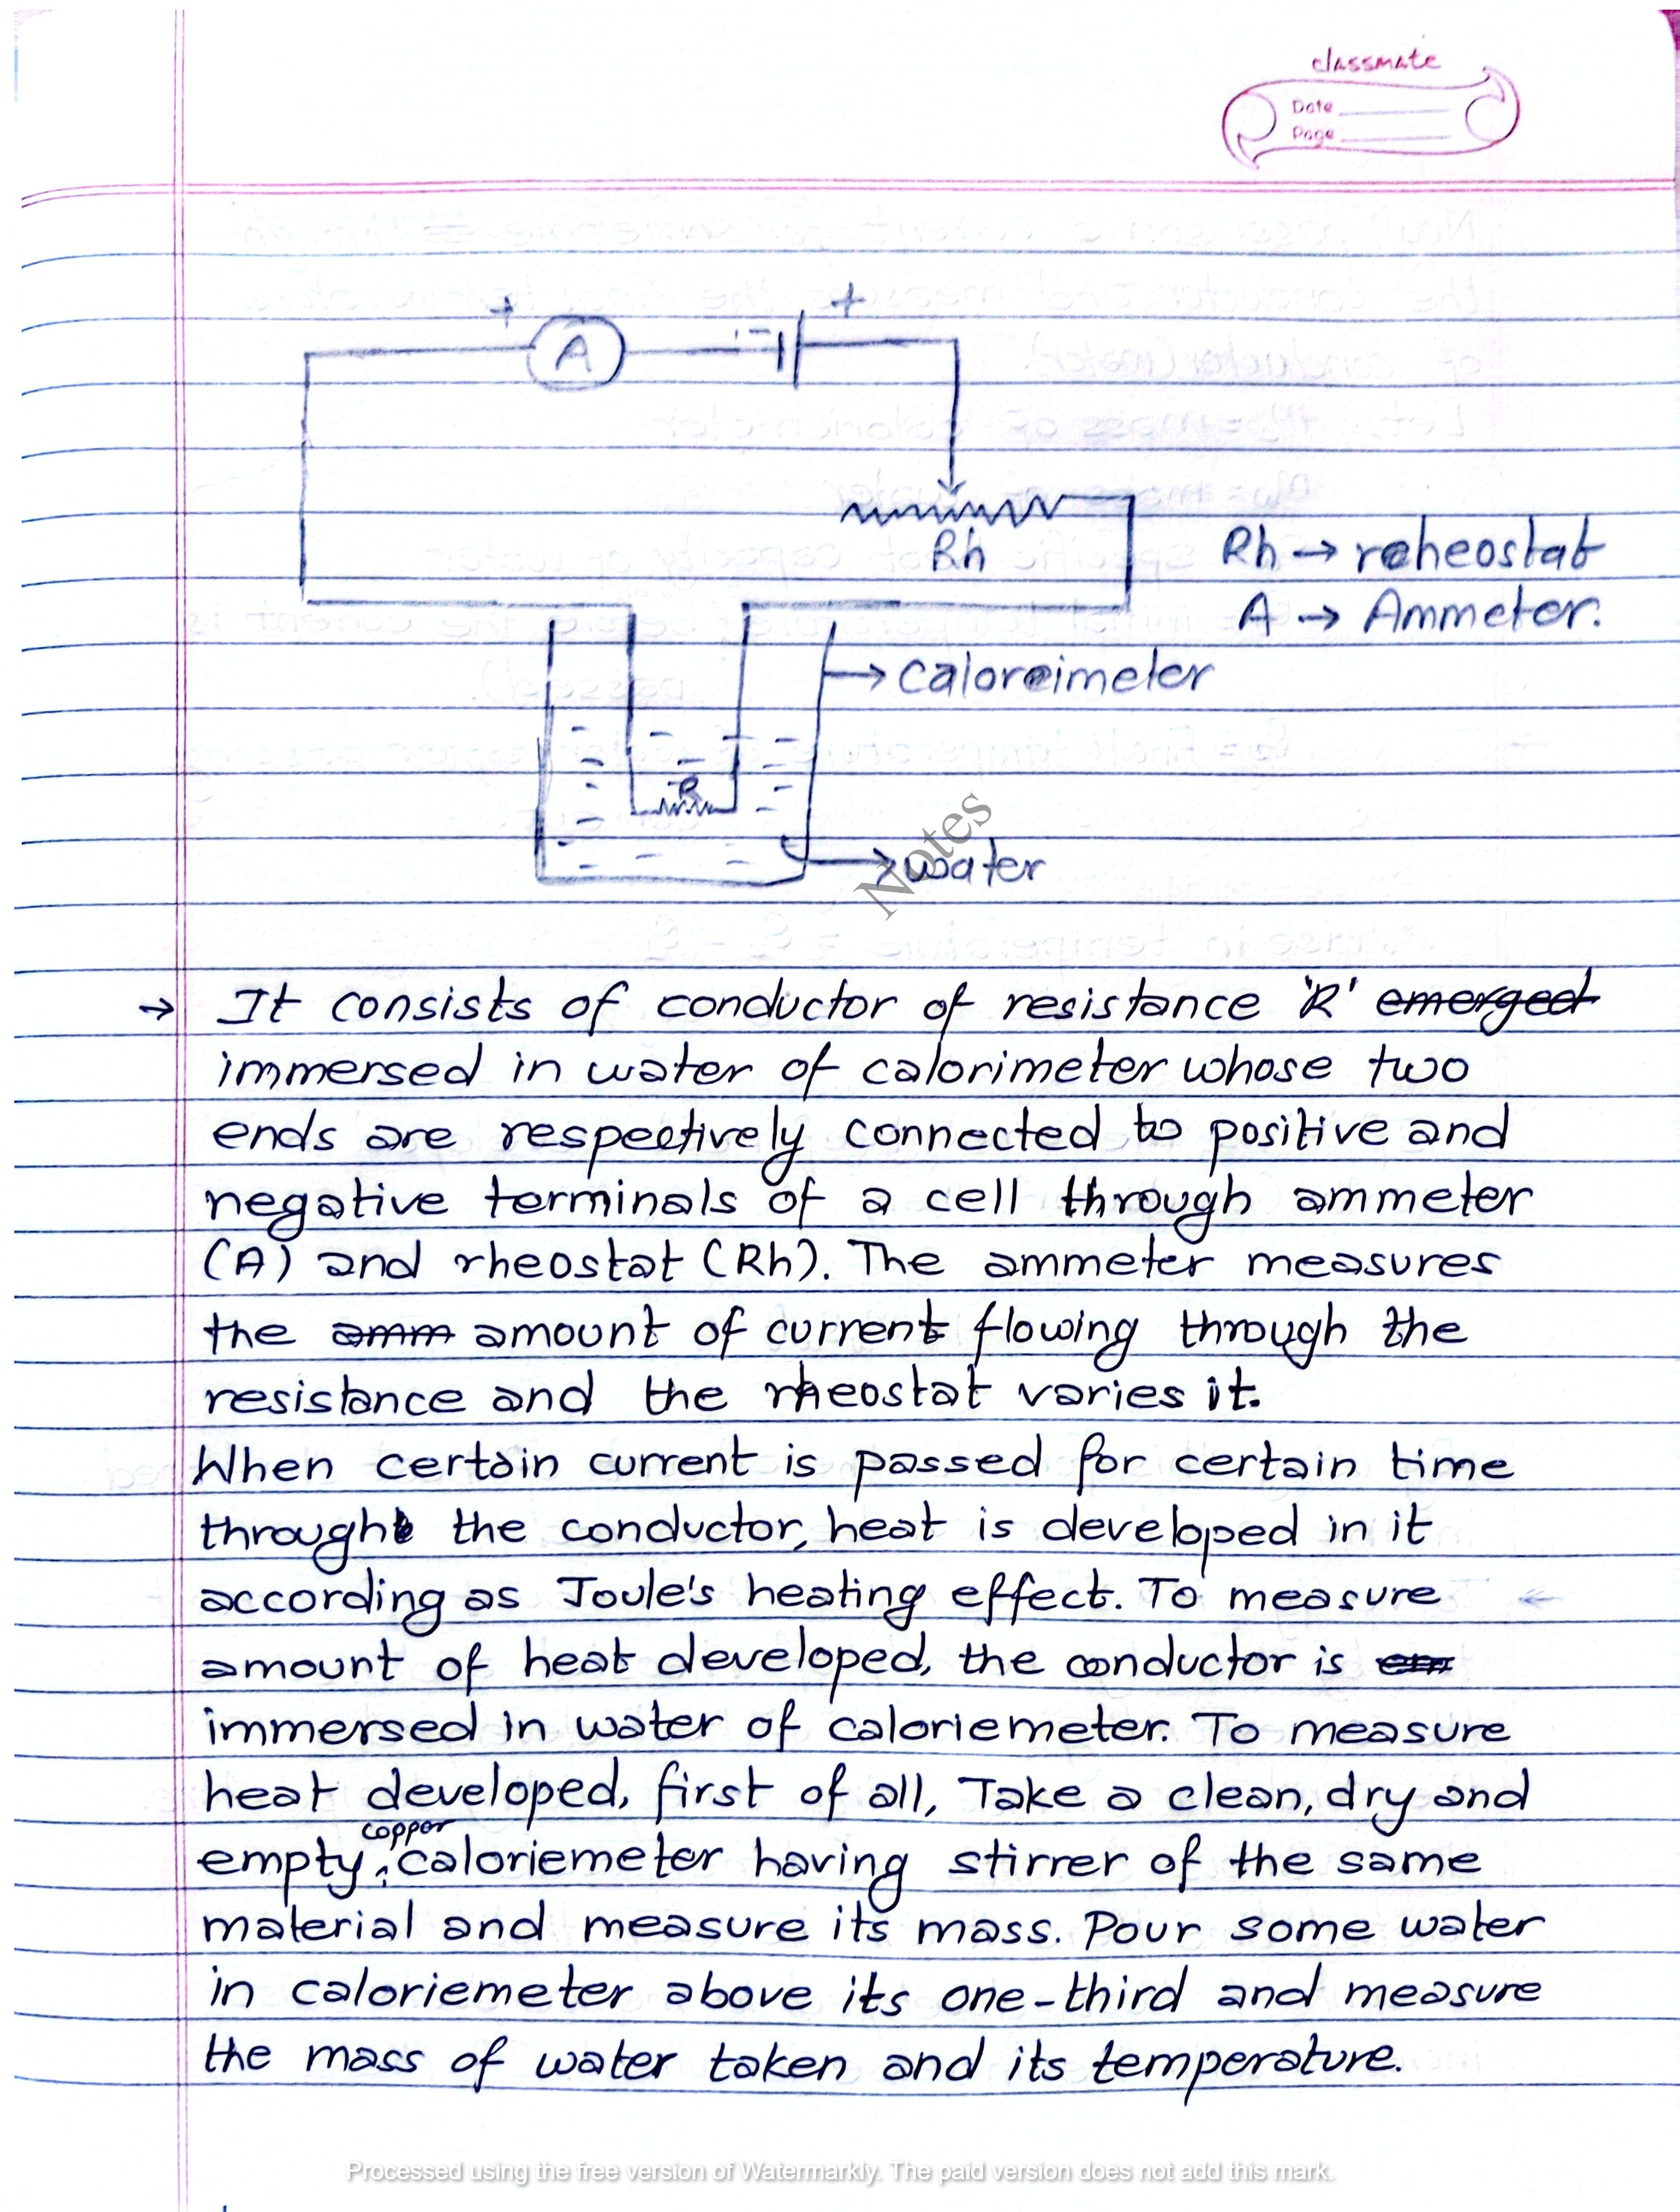 classmate
Date
Page
+
A
- +
Rh
Rh → rheostat
A → Ammeter.
→ Calorimeter
R
Notes
→ water
→ It consists of conductor of resistance 'R' emerged
immersed in water of calorimeter whose two
ends are respectively connected to positive and
negative terminals of a cell through ammeter
(A) and rheostat (Rh). The ammeter measures
the amm amount of current flowing through the
resistance and the rheostat varies it.
When certain current is passed for certain time
through the conductor, heat is developed in it
according as Joule's heating effect. To measure
amount of heat developed, the conductor is em
immersed in water of caloriemeter. To measure
heat developed, first of all, Take a clean, dry and
copper
empty, caloriemeter having stirrer of the same
material and measure its mass. Pour some water
in caloriemeter above its one-third and measure
the mass of water taken and its temperature.
Processed using the free version of Watermarkly. The paid version does not add this mark.